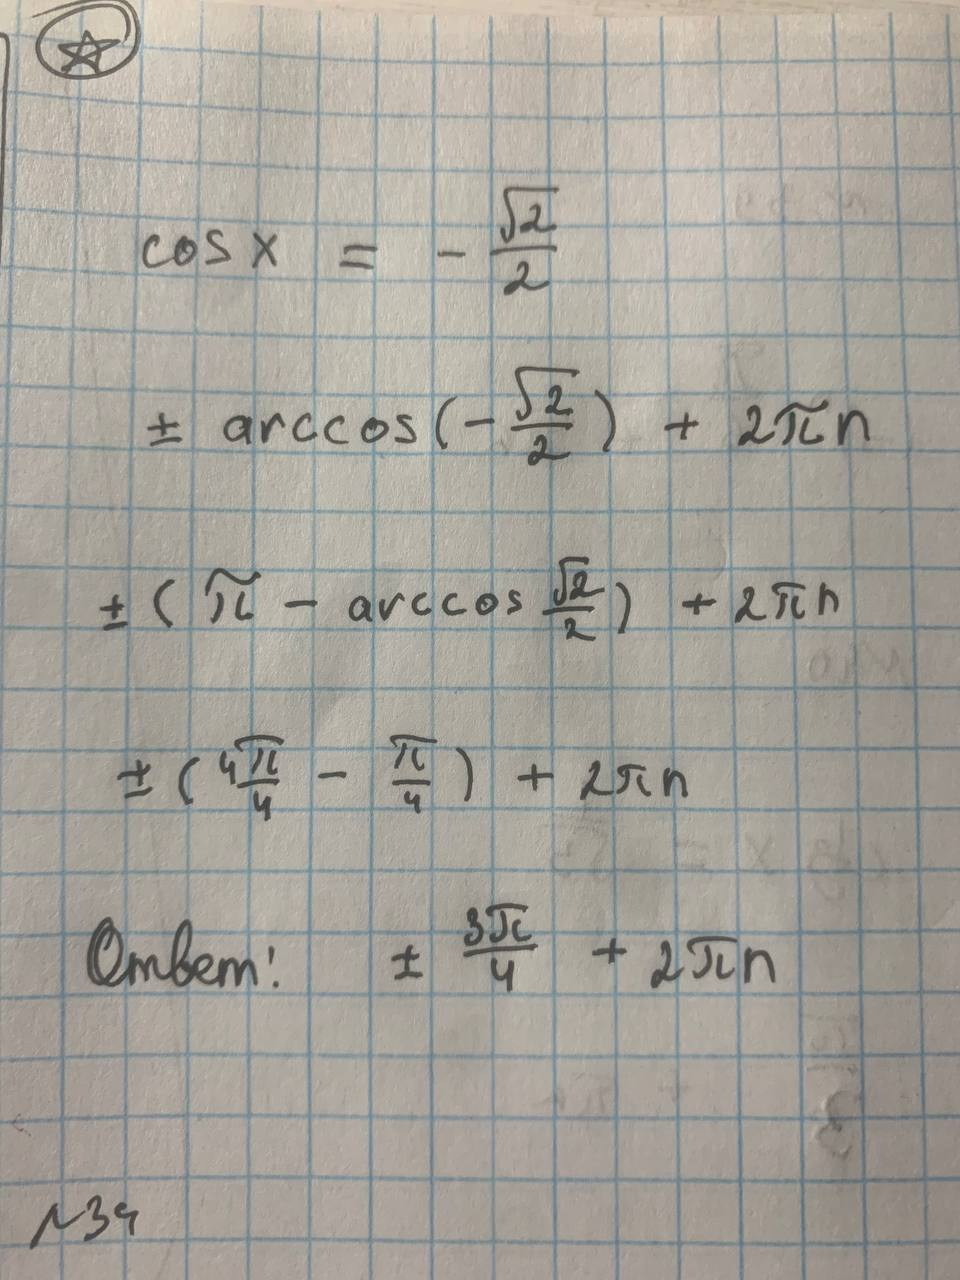 cos x = - √2/2
± arccos(-√2/2) + 2πn
± (π - arccos √2/2) + 2πn
± (4π/4 - π/4) + 2πn
Ответ: ± 3π/4 + 2πn